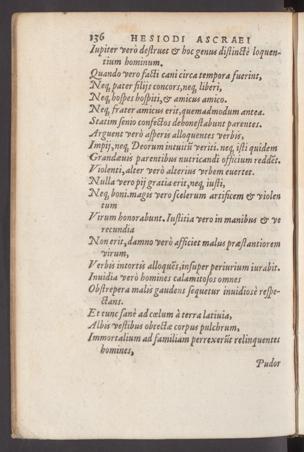 136 HESIODI ASCRAEI
Iupiter verò destruet & hoc genus distinctè loquen-
tium hominum.
Quando vero facti cani circa tempora fuerint,
Neq, pater filijs concors, neq, liberi,
Neq, hospes hospiti, & amicus amico.
Neq, frater amicus erit, quemadmodum antea.
Statim senio confectos dehonestabunt parentes.
Arguent verò asperis alloquentes verbis,
Impij, neq, Deorum intuitũ veriti. neq, isti quidem
Grandæuis parentibus nutricandi officium reddẽt.
Violenti, alter verò alterius vrbem euertet.
Nulla vero pij gratia erit, neq, iusti,
Neq, boni. magis vero scelerum artificem & violen
tum
Virum honorabunt. Iustitia vero in manibus & ve
recundia
Non erit, damno verò afficiet malus præstantiorem
virum,
Verbis intortis alloquẽs, insuper periurium iurabit.
Inuidia verò homines calamitosos omnes
Obstrepera malis gaudens sequetur inuidiosè respe-
ctans.
Et tunc sanè ad cœlum à terra latiuia,
Albis vestibus obtectæ corpus pulchrum,
Immortalium ad familiam perrexerũt relinquentes
homines,
Pudor